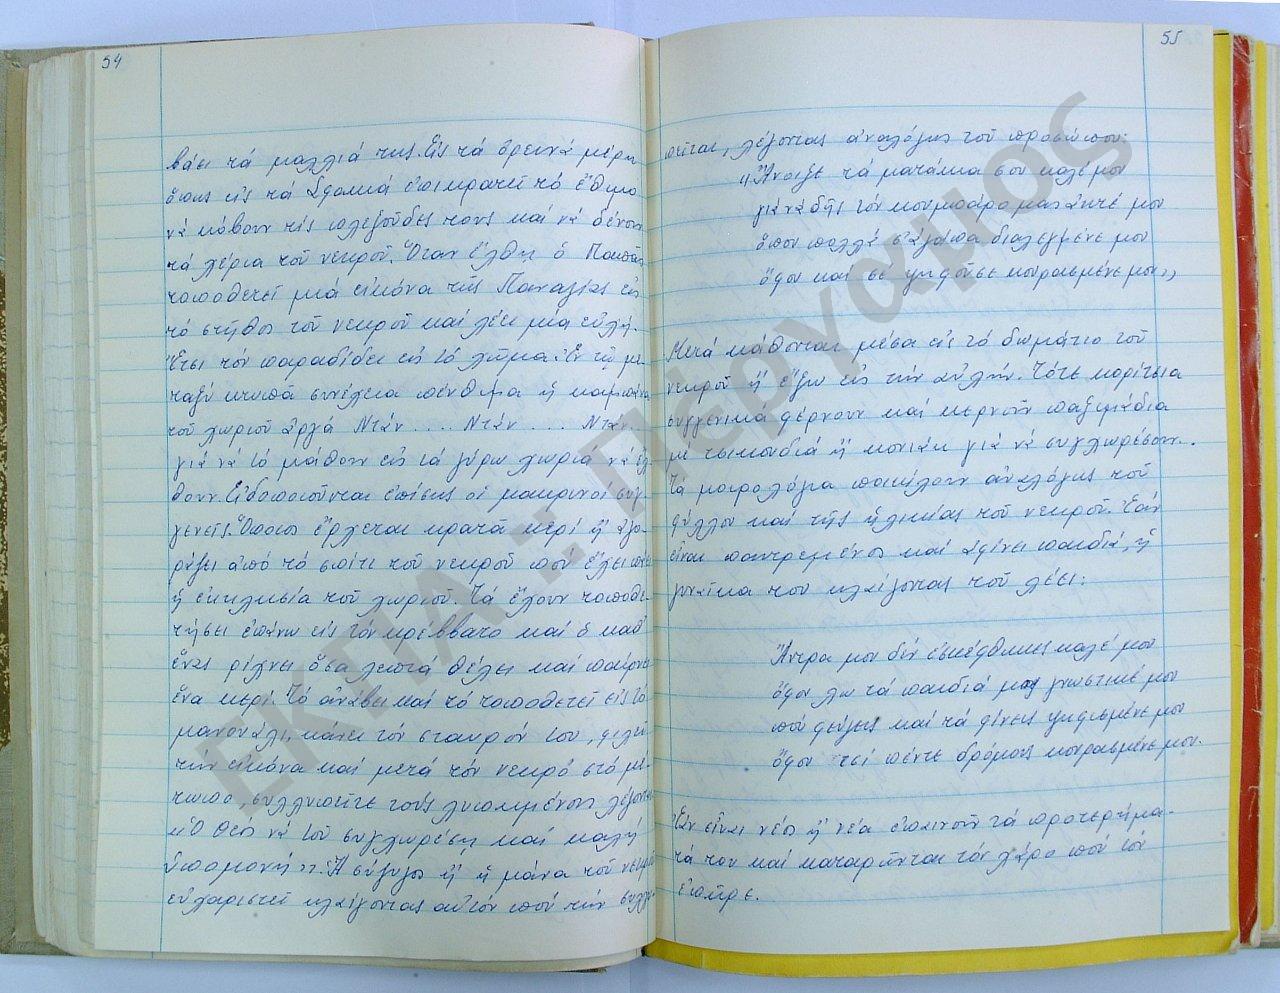 54
βάει τά μαλλιά της. Εἰς τά ὀρεινά μέρη
ὅπως εἰς τά Σφακιά ἐπικρατεῖ τό ἔθιμο
νά κόβουν τίς πλεξοῦδες τους καί νά δένουν
τά χέρια τοῦ νεκροῦ. Ὅταν ἔλθῃ ὁ Παπᾶς
τοποθετεῖ μιά εἰκόνα τῆς Παναγίας εἰς
τό στῆθος τοῦ νεκροῦ καί λέει μία εὐχή.
Ἔτσι τόν παραδίδει εἰς τό χῶμα. Ἐν τῷ με-
ταξύ κτυπᾶ συνέχεια πένθιμα ἡ καμπάνα
τοῦ χωριοῦ ἀργά Ντάν .... Ντάν ... Ντάν..
γιά νά τό μάθουν εἰς τά γύρω χωριά νά ἔλ-
θουν. Εἰδοποιοῦνται ἐπίσης οἱ μακρινοί συγ-
γενεῖς. Ὅποιος ἔρχεται κρατᾶ κερί ἤ ἀγο-
ράζει ἀπό τό σπίτι τοῦ νεκροῦ πού ἔχει πάει
ἡ ἐκκλησία τοῦ χωριοῦ. Τά ἔχουν τοποθε-
τήσει ἐπάνω εἰς τόν κρέββατο καί ὁ καθ'
ἕνας ρίχνει ὅσα λεπτά θέλει καί παίρνει
ἕνα κερί. Τό ἀνάβει καί τό τοποθετεῖ εἰς τό
μανουάλι, κάνει τόν σταυρόν του, φιλεῖ
τήν εἰκόνα καί μετά τόν νεκρό στό μέ-
τωπο, συλλυπεῖται τούς λυπημένους λέγοντας
«Ὁ Θεός νά τοῦ συγχωρέσῃ καί καλή
ὑπομονή». Ἡ σύζυγος ἤ ἡ μάνα τοῦ νεκροῦ
εὐχαριστεῖ κλαίγοντας αὐτόν πού τήν συλλυ-
55
πεῖται, λέγοντας ἀναλόγως τοῦ προσώπου:
"Ἄνοιξε τά ματάκια σου καλέ μου
γιά νά δῇς τόν κουμπάρο μας
ὅπου πολλά σ' ἀγάπα διαλεγμένε μου
ὅφου καί σε ψηφοῦσε κουρασμένε μου"
Μετά κάθονται μέσα εἰς τό δωμάτιο τοῦ
νεκροῦ ἤ ἔξω εἰς τήν αὐλήν. Τότε κορίτσια
συγγενικά φέρνουν καί κερνοῦν παξιμάδια
μέ τσικουδιά ἤ κονιάκ γιά νά συγχωρέσουν.
Τά μοιρολόγια ποικίλουν ἀναλόγως τοῦ
φύλλου καί τῆς ἡλικίας τοῦ νεκροῦ. Ἐάν
εἶναι παντρεμένος καί ἀφίνει παιδιά, ἡ
γυναίκα του κλαίγοντας τοῦ λέει:
Ἄντρα μου δέν ἐσκέφθηκες καλέ μου
ὄφου χω τά παιδιά μας γνωστικέ μου
πού φεύγεις καί τά φίνεις ψηφισμένε μου
ὄφου τσί πέντε δρόμους κουρασμένε μου.
Ἐάν εἶναι νέος ἤ νέα ἐπαινοῦν τά προτερήμα-
τά του καί καταρῶνται τόν χάρο πού τόν
ἐπῆρε.
ΕΚΠΑ :: Πέργαμος